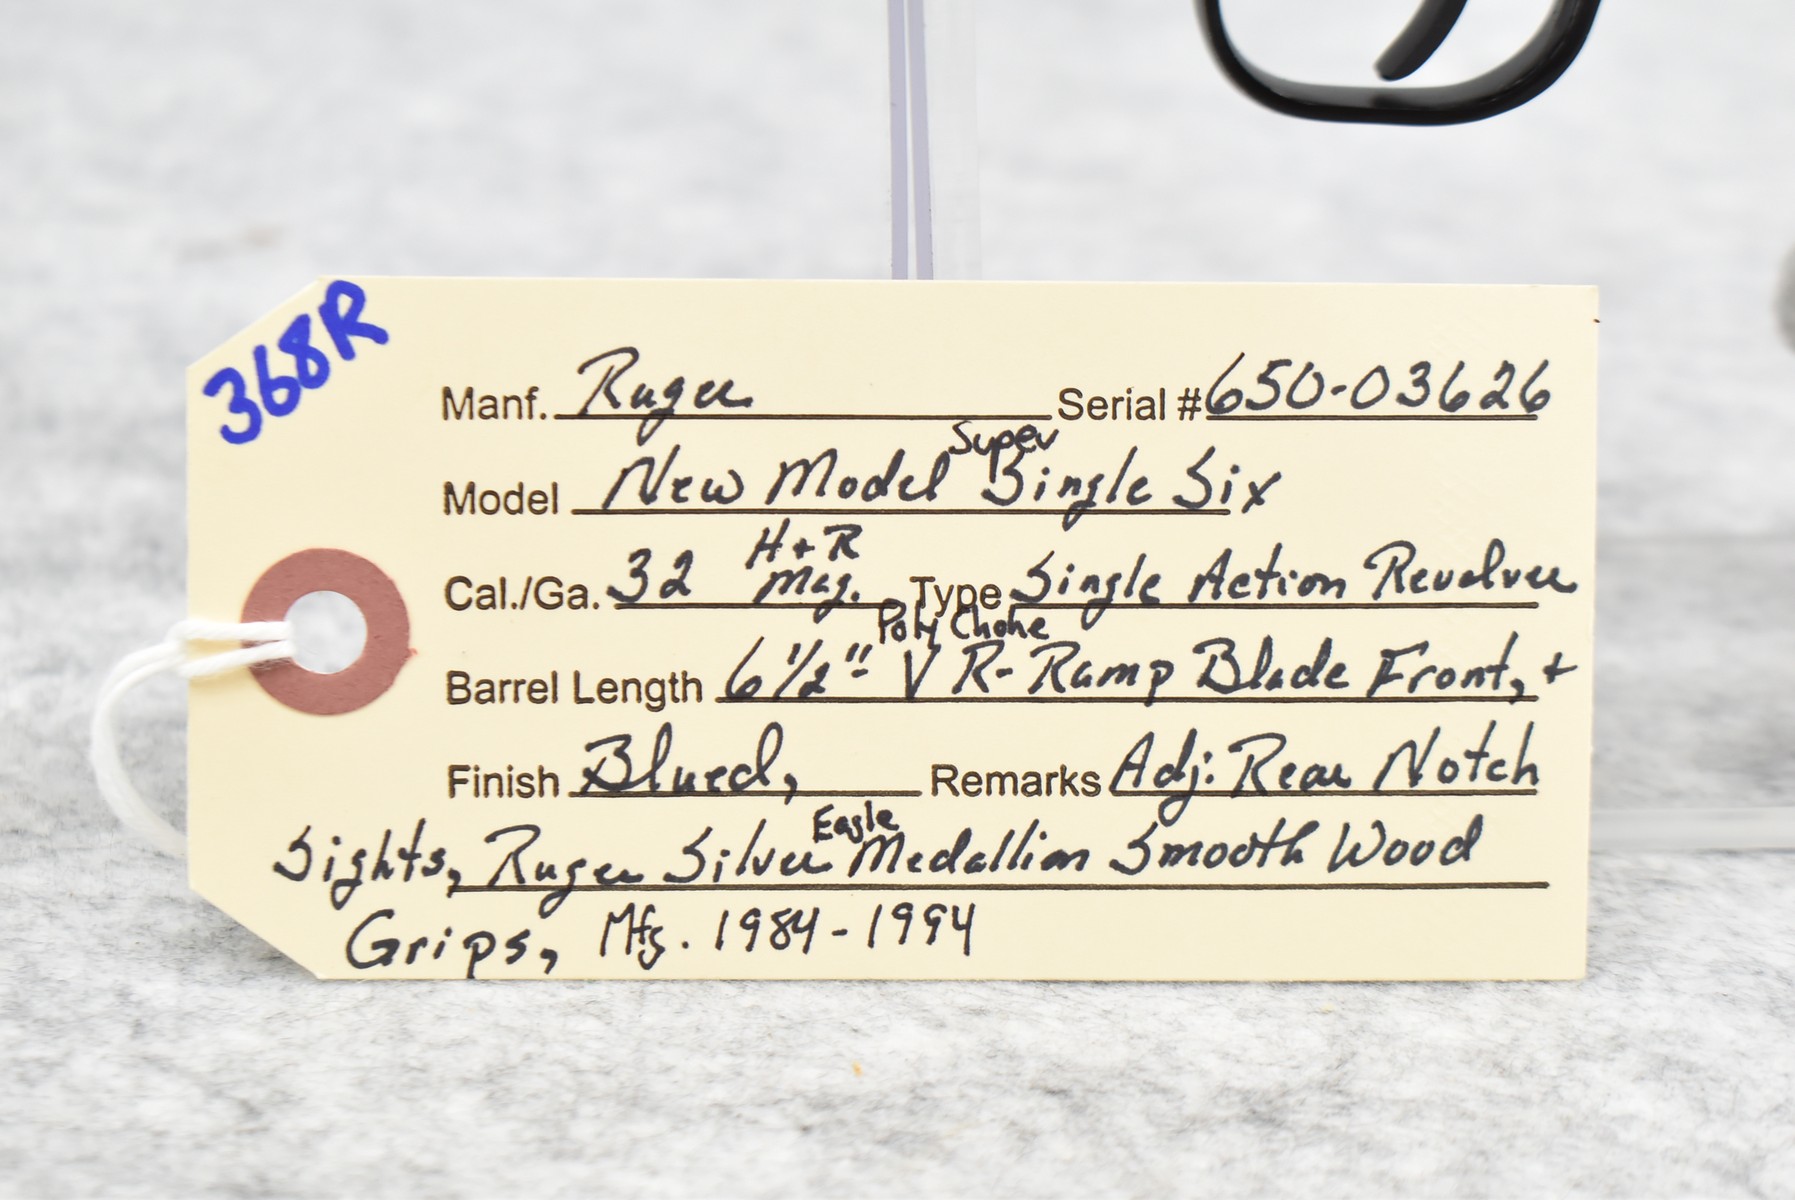 368R
Manf. Ruger Serial # 650-03626
Model New Model Super Single Six
Cal./Ga. 32 H+R Mag. Type Single Action Revolver
Barrel Length 6 1/2" Poly Choke V R- Ramp Blade Front, +
Finish Blued, Remarks Adj. Rear Notch
Sights, Ruger Silver Eagle Medallion Smooth Wood
Grips, Mfg. 1984-1994